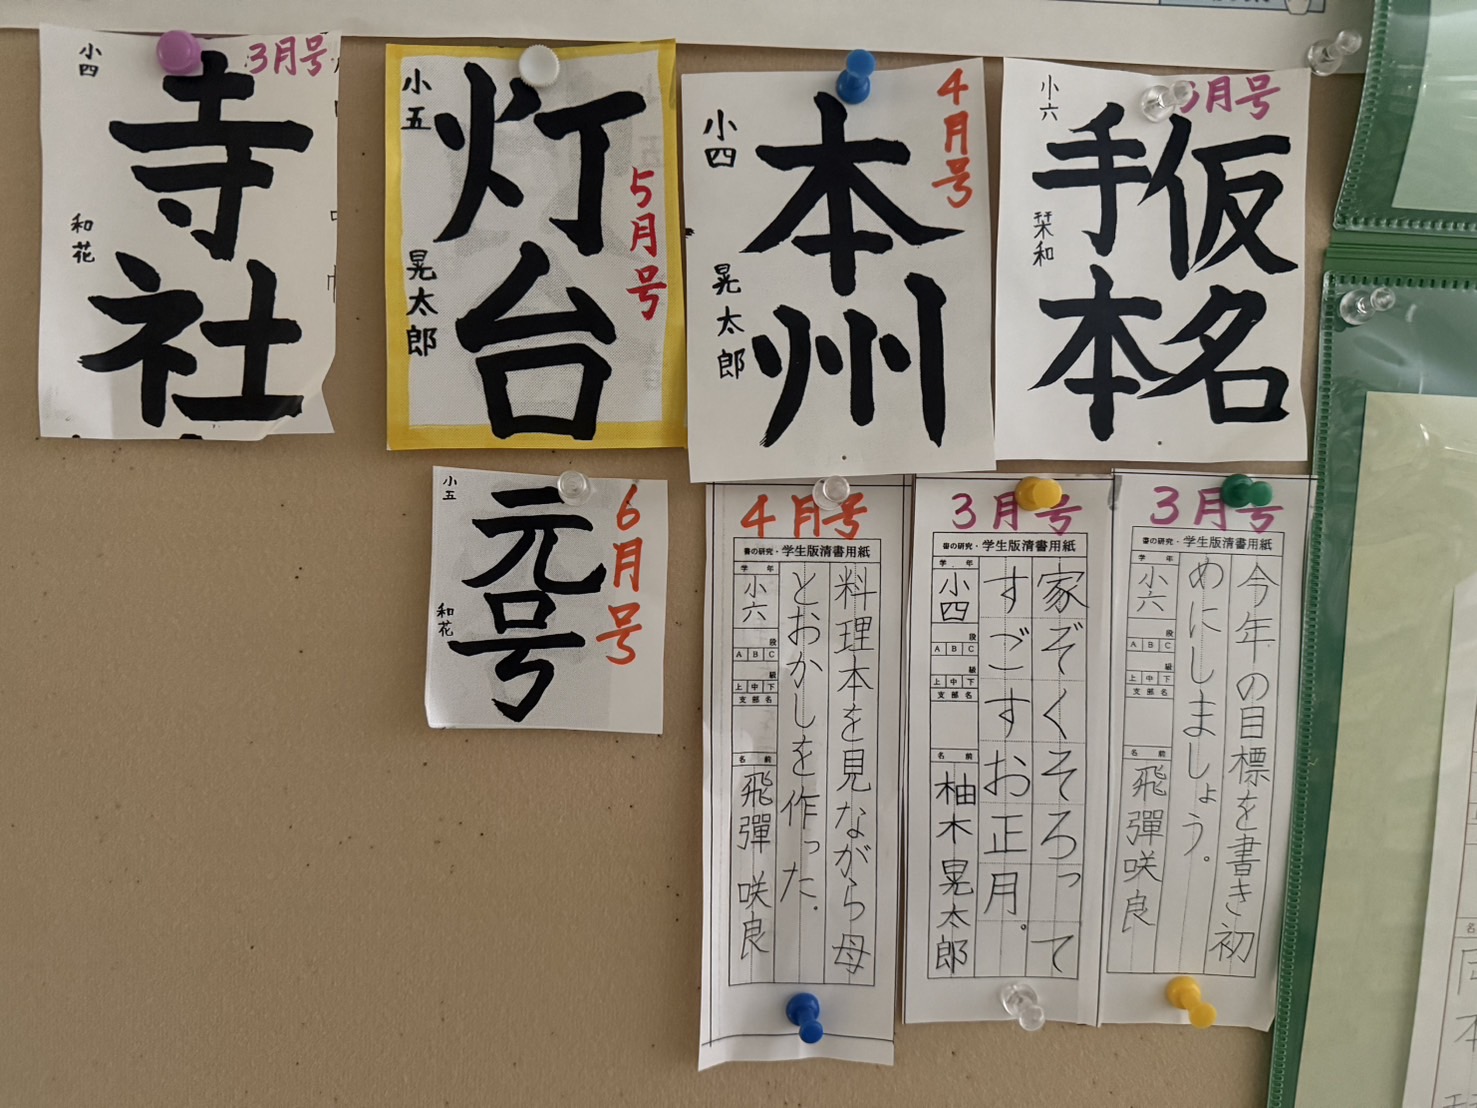 3月号
小四
寺社
和花
小五
灯台
5月号
晃太郎
4月号
小四
本州
晃太郎
月号
小六
仮名
手本
栞和
小五
元号
6月号
和花
4月号
書の研究・学生版清書用紙
料理本を見ながら母
とおかしを作った。
学年
小六
段
A B C
級
上 中 下
支部名
名前
飛彈咲良
3月号
書の研究・学生版清書用紙
家ぞくそろって
すごすお正月。
学年
小四
段
A B C
級
上 中 下
支部名
名前
柚木晃太郎
3月号
書の研究・学生版清書用紙
今年の目標を書き初
めにしましょう。
学年
小六
段
A B C
級
上 中 下
支部名
名前
飛彈咲良